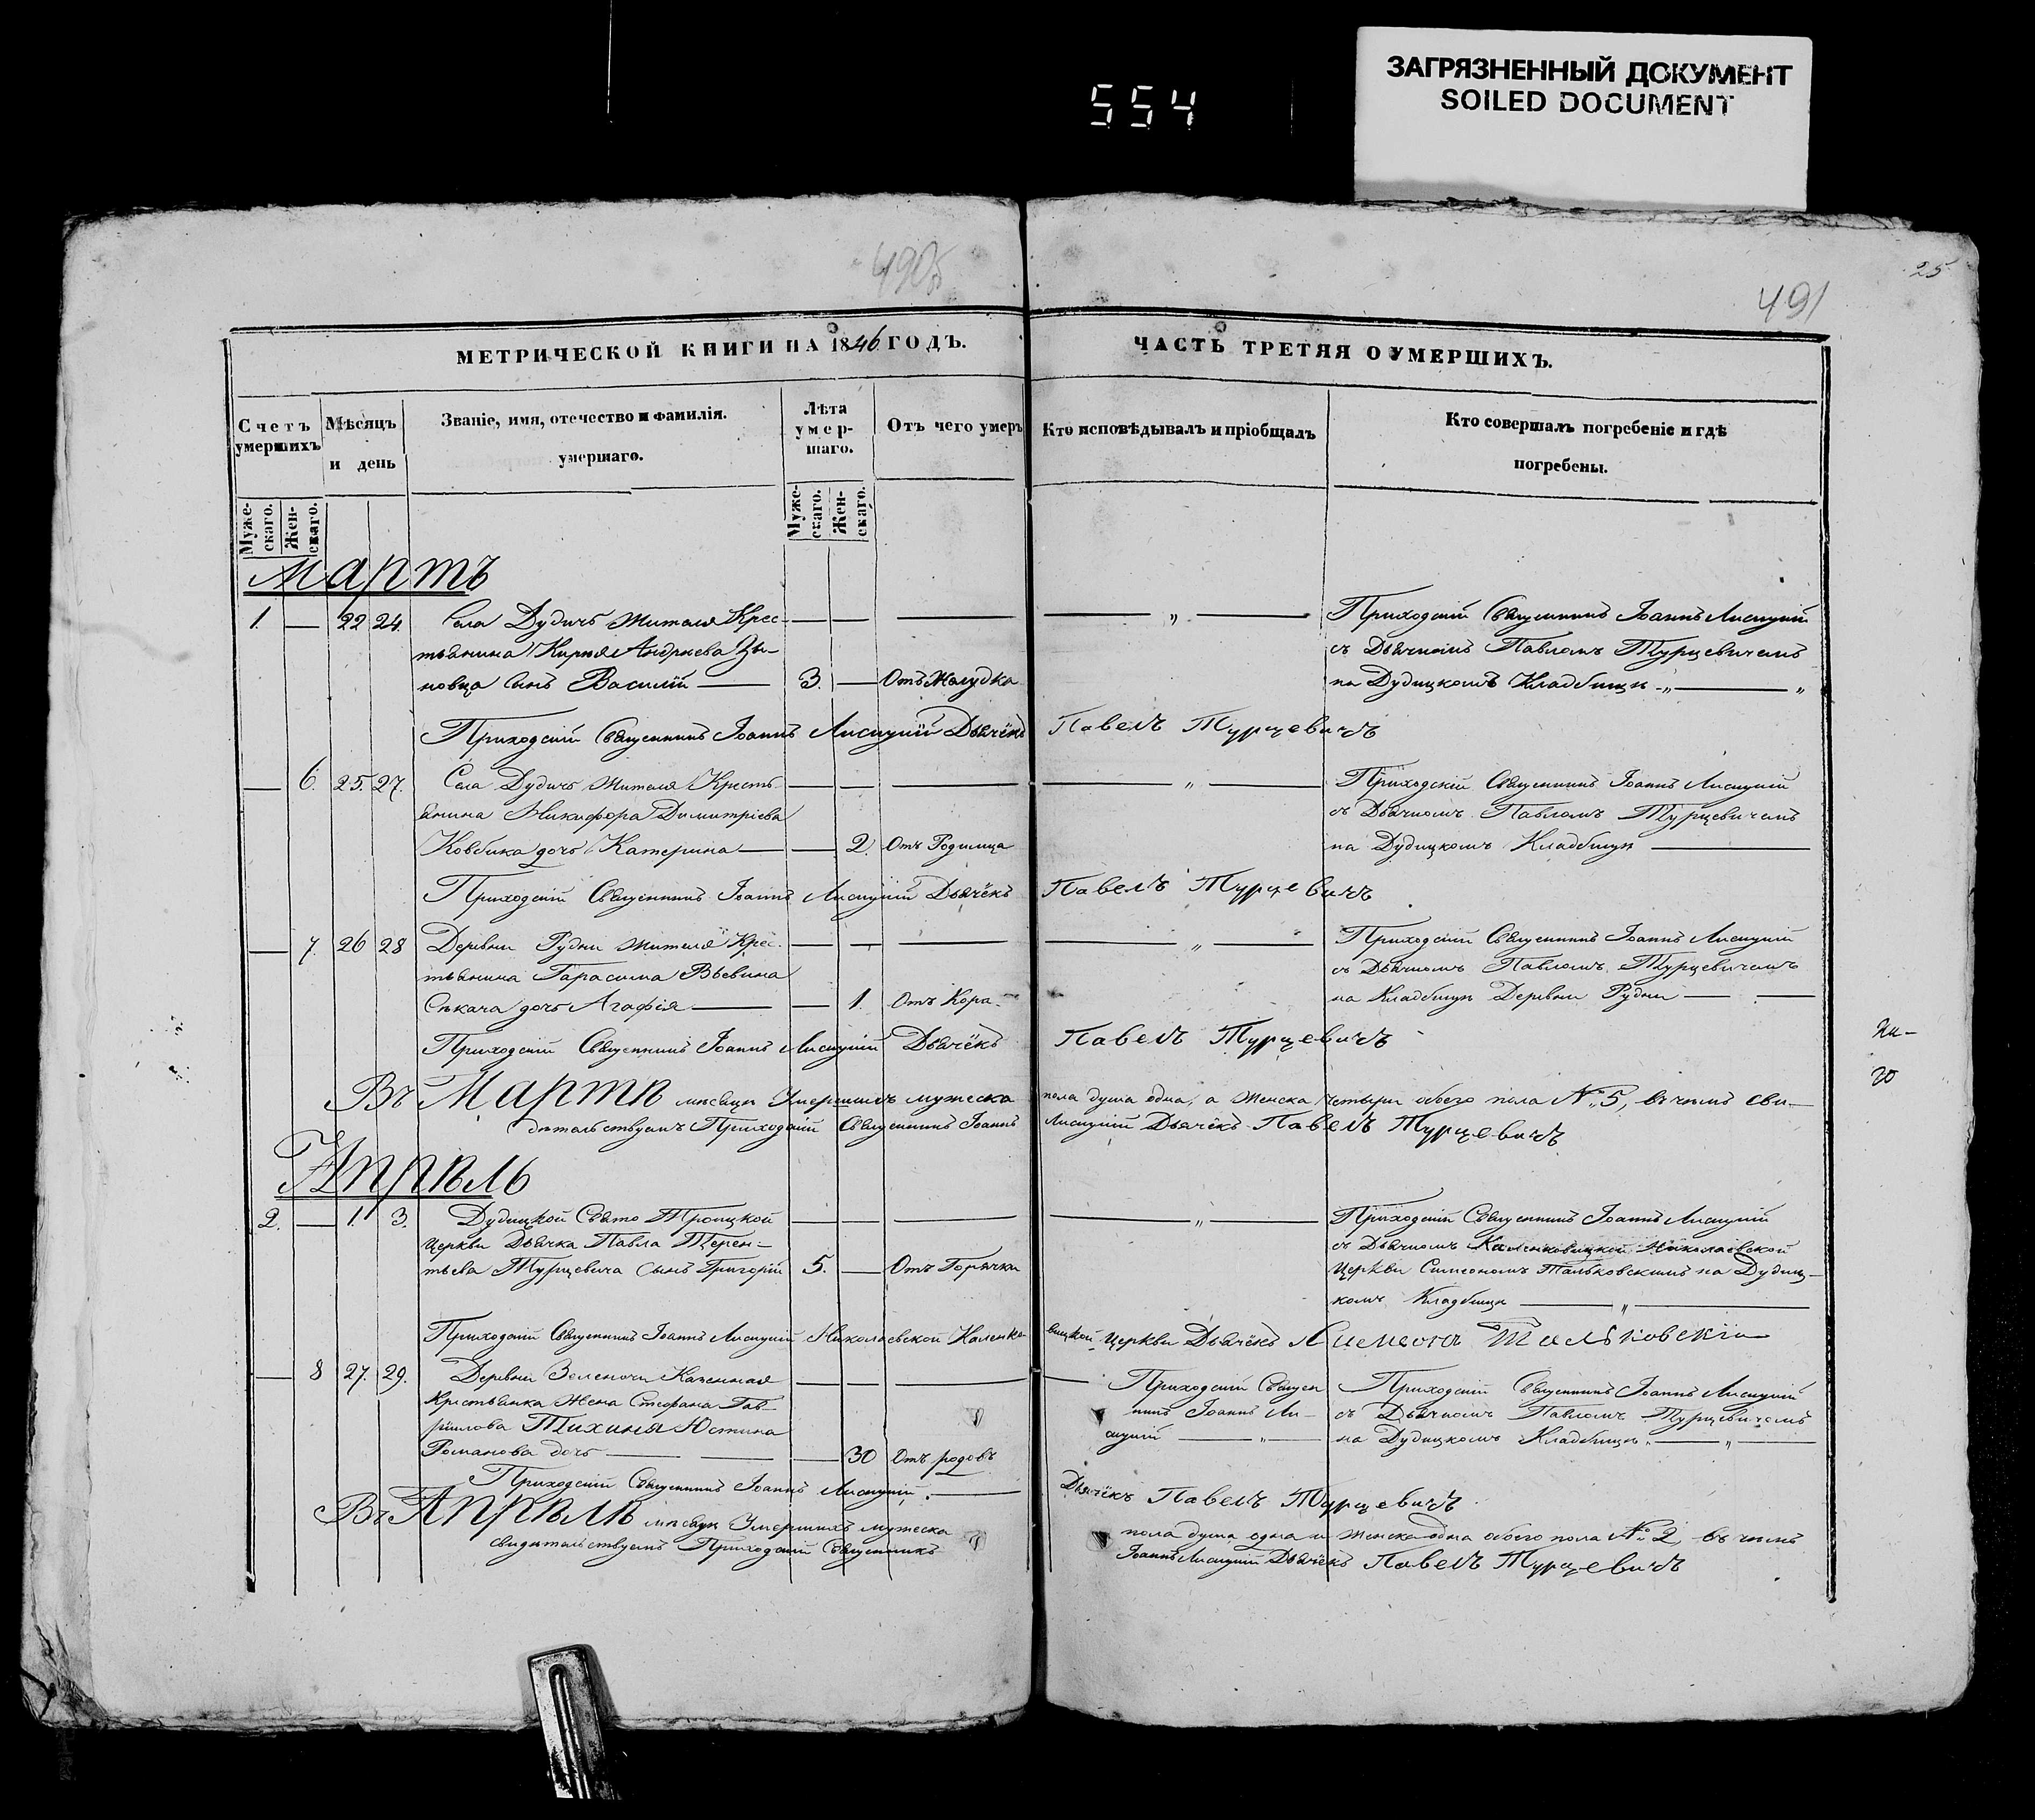 ЗАГРЯЗНЕННЫЙ ДОКУМЕНТ
SOILED DOCUMENT
554
25
491
МЕТРИЧЕСКОЙ КНИГИ НА 1846 ГОДЪ.
ЧАСТЬ ТРЕТЯЯ О УМЕРШИХЪ.
Счетъ умершихъ
Мѣсяцъ и день
Званіе, имя, отечество и фамилія.
умершаго.
Лѣта умершаго.
Отъ чего умеръ
Кто исповѣдывалъ и пріобщалъ
Кто совершалъ погребеніе и гдѣ
погребены.
Муже-скаго.
Жен-скаго.
Муже-скаго.
Жен-скаго.
Мартъ
1. — 22 24. Села Дудичъ жителя Крес- — — — — „ — Приходскій Священникъ Іоаннъ Лисицкій
тьянина Андреева Зы- съ Дьячкомъ Павломъ Турцевичемъ
новца сынъ Василій — 3. — Отъ Желудка на Дудицкомъ Кладбищѣ — „ — „
Приходскій Священникъ Іоаннъ Лисицкій Дьячёкъ Павелъ Турцевичъ
— 6. 25. 27. Села Дудичъ жителя Кресть- — — — — „ — Приходскій Священникъ Іоаннъ Лисицкій
янина Никифора Димитріева съ Дьячкомъ Павломъ Турцевичемъ
Ковбика дочь Катерина — — 2. Отъ Родимца на Дудицкомъ Кладбищѣ —
Приходскій Священникъ Іоаннъ Лисицкій Дьячёкъ Павелъ Турцевичъ
— 7. 26 28 Деревни Рудни жителя Крес- — — — — „ — Приходскій Священникъ Іоаннъ Лисицкій
тьянина Гарасима съ Дьячкомъ Павломъ Турцевичемъ
Сѣкача дочь Агафія — — 1. Отъ Кора- на Кладбищѣ Деревни Рудни —
Приходскій Священникъ Іоаннъ Лисицкій Дьячёкъ Павелъ Турцевичъ
Въ Мартѣ мѣсяцѣ Умершихъ мужеска пола душа одна, а женска четыри обоего пола № 5, въ чемъ сви-
дѣтельствуемъ Приходскій Священникъ Іоаннъ Лисицкій Дьячёкъ Павелъ Турцевичъ
Апрѣль
2. — 1. 3. Дудицкой Свято Троицкой — — — — „ — Приходскій Священникъ Іоаннъ Лисицкій
Церкви Дьячка Павла Терен- съ Дьячкомъ Николаевской
тьева Турцевича сынъ Григорій 5. — Отъ Горячки Церкви Симеономъ Тальковскимъ на Дудиц-
комъ Кладбищѣ — „ —
Приходскій Священникъ Іоаннъ Лисицкій Николаевской Каленко вицкой Церкви Дьячёкъ Симеонъ Тальковскій
— 8 27. 29. Деревни Зеленочи Казенная — — — — Приходскій Священ Приходскій Священникъ Іоаннъ Лисицкій
Крестьянка Жена Стефана Гав- никъ Іоаннъ Ли- съ Дьячкомъ Павломъ Турцевичемъ
ріилова Тихиня Юстина сицкій — „ — на Дудицкомъ Кладбищѣ — „ —
Романова дочь — — 30 Отъ родовъ
Приходскій Священникъ Іоаннъ Лисицкій. — Дьячёкъ Павелъ Турцевичъ
Въ Апрѣлѣ мѣсяцѣ Умершихъ мужеска пола душа одна и женска одна обоего пола № 2, въ чемъ
свидѣтельствуемъ Приходскій Священникъ Іоаннъ Лисицкій Дьячёкъ Павелъ Турцевичъ